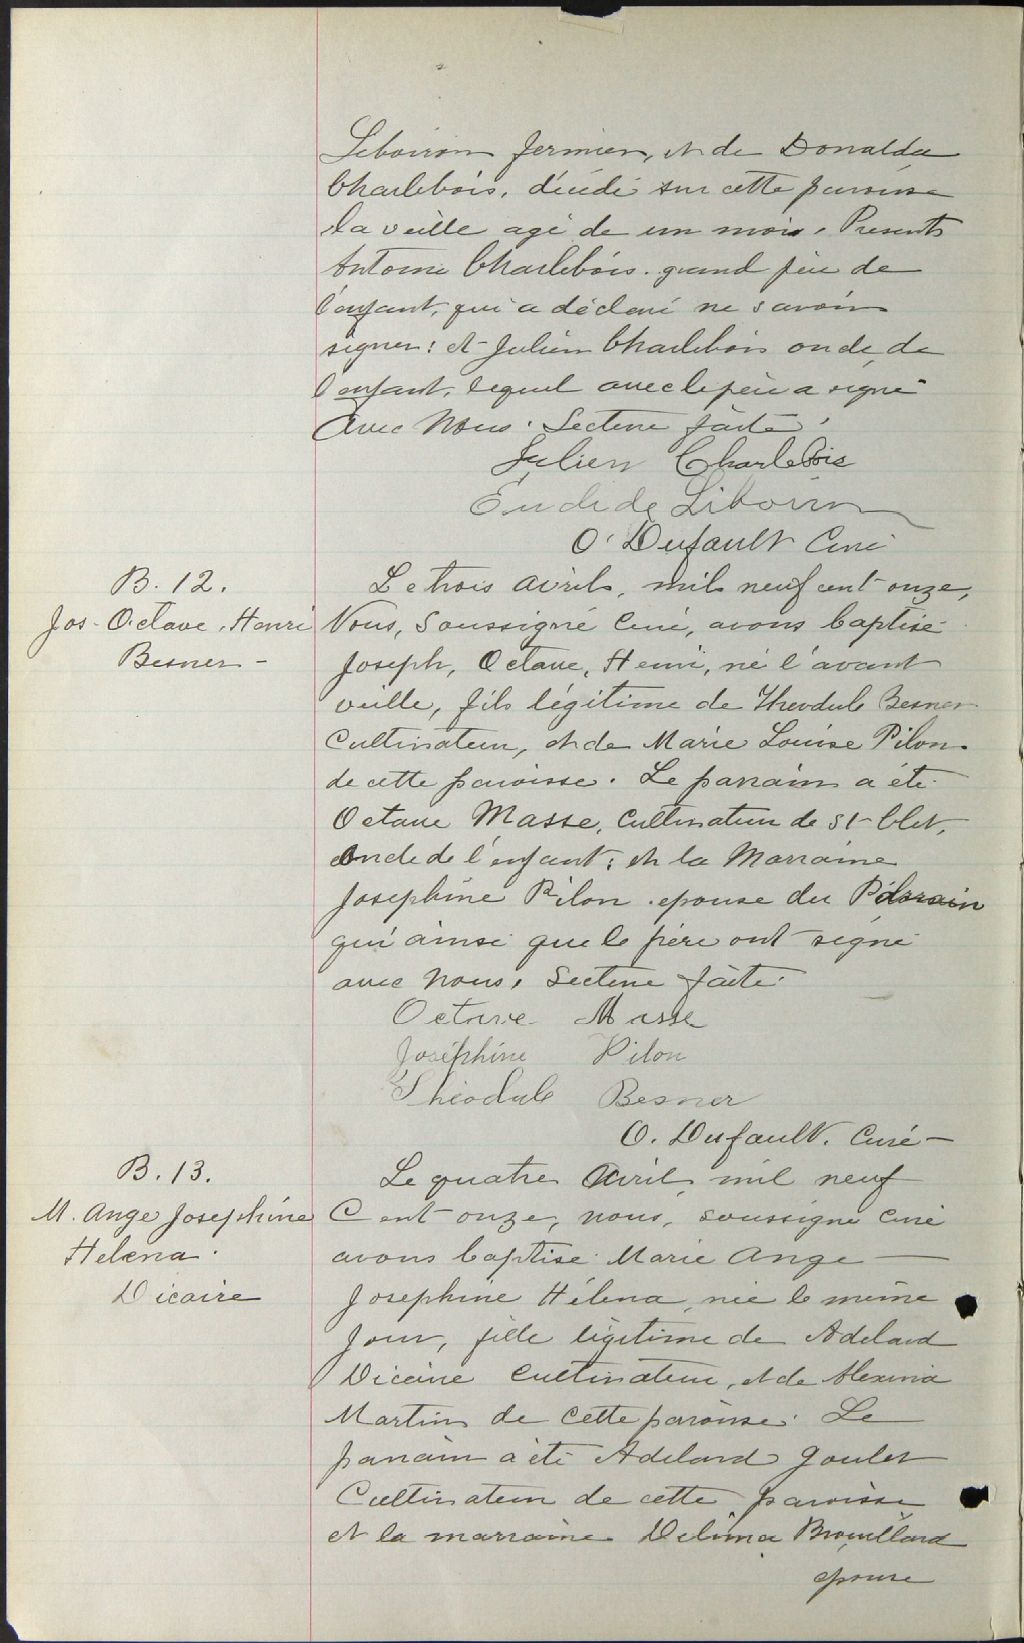 Leboiron fermier, et de Donalda
Charlebois, décédé sur cette paroisse
la veille agé de un mois. Presents
Antoine Charlebois grand père de
l'enfant, qui a déclaré ne savoir
signer: et Julien Charlebois oncle de
l'enfant, lequel avec le père a signé
Avec Nous. Lecture faite.
Julien Charlebois
Euclide Liboiron
O. Dufault Curé
B. 12.
Jos. Octave, Henri
Besner -
Le trois avril, mil neuf cent onze,
Nous, Soussigné Curé, avons baptisé
Joseph, Octave, Henri, né l'avant
veille, fils légitime de Theodule Besner
Cultivateur, et de Marie Louise Pilon
de cette paroisse. Le parrain a été
Octave Masse, Cultivateur de St Clet,
oncle de l'enfant; et la Marraine
Josephine Pilon epouse du Parrain
qui ainsi que le père ont signé
avec Nous. Lecture faite.
Octave Masse
Joséphine Pilon
Théodule Besner
O. Dufault. Curé -
B. 13.
M. Ange Josephine
Helena
Dicaire
Le quatre Avril, mil neuf
Cent onze, nous, soussigné Curé
avons baptisé Marie Ange
Josephine Hélena, née le même
jour, fille légitime de Adelard
Dicaire Cultivateur, et de Alexina
Martin de cette paroisse. Le
parrain a été Adelard Goulet
Cultivateur de cette paroisse
et la marraine Delima Brouillard
épouse